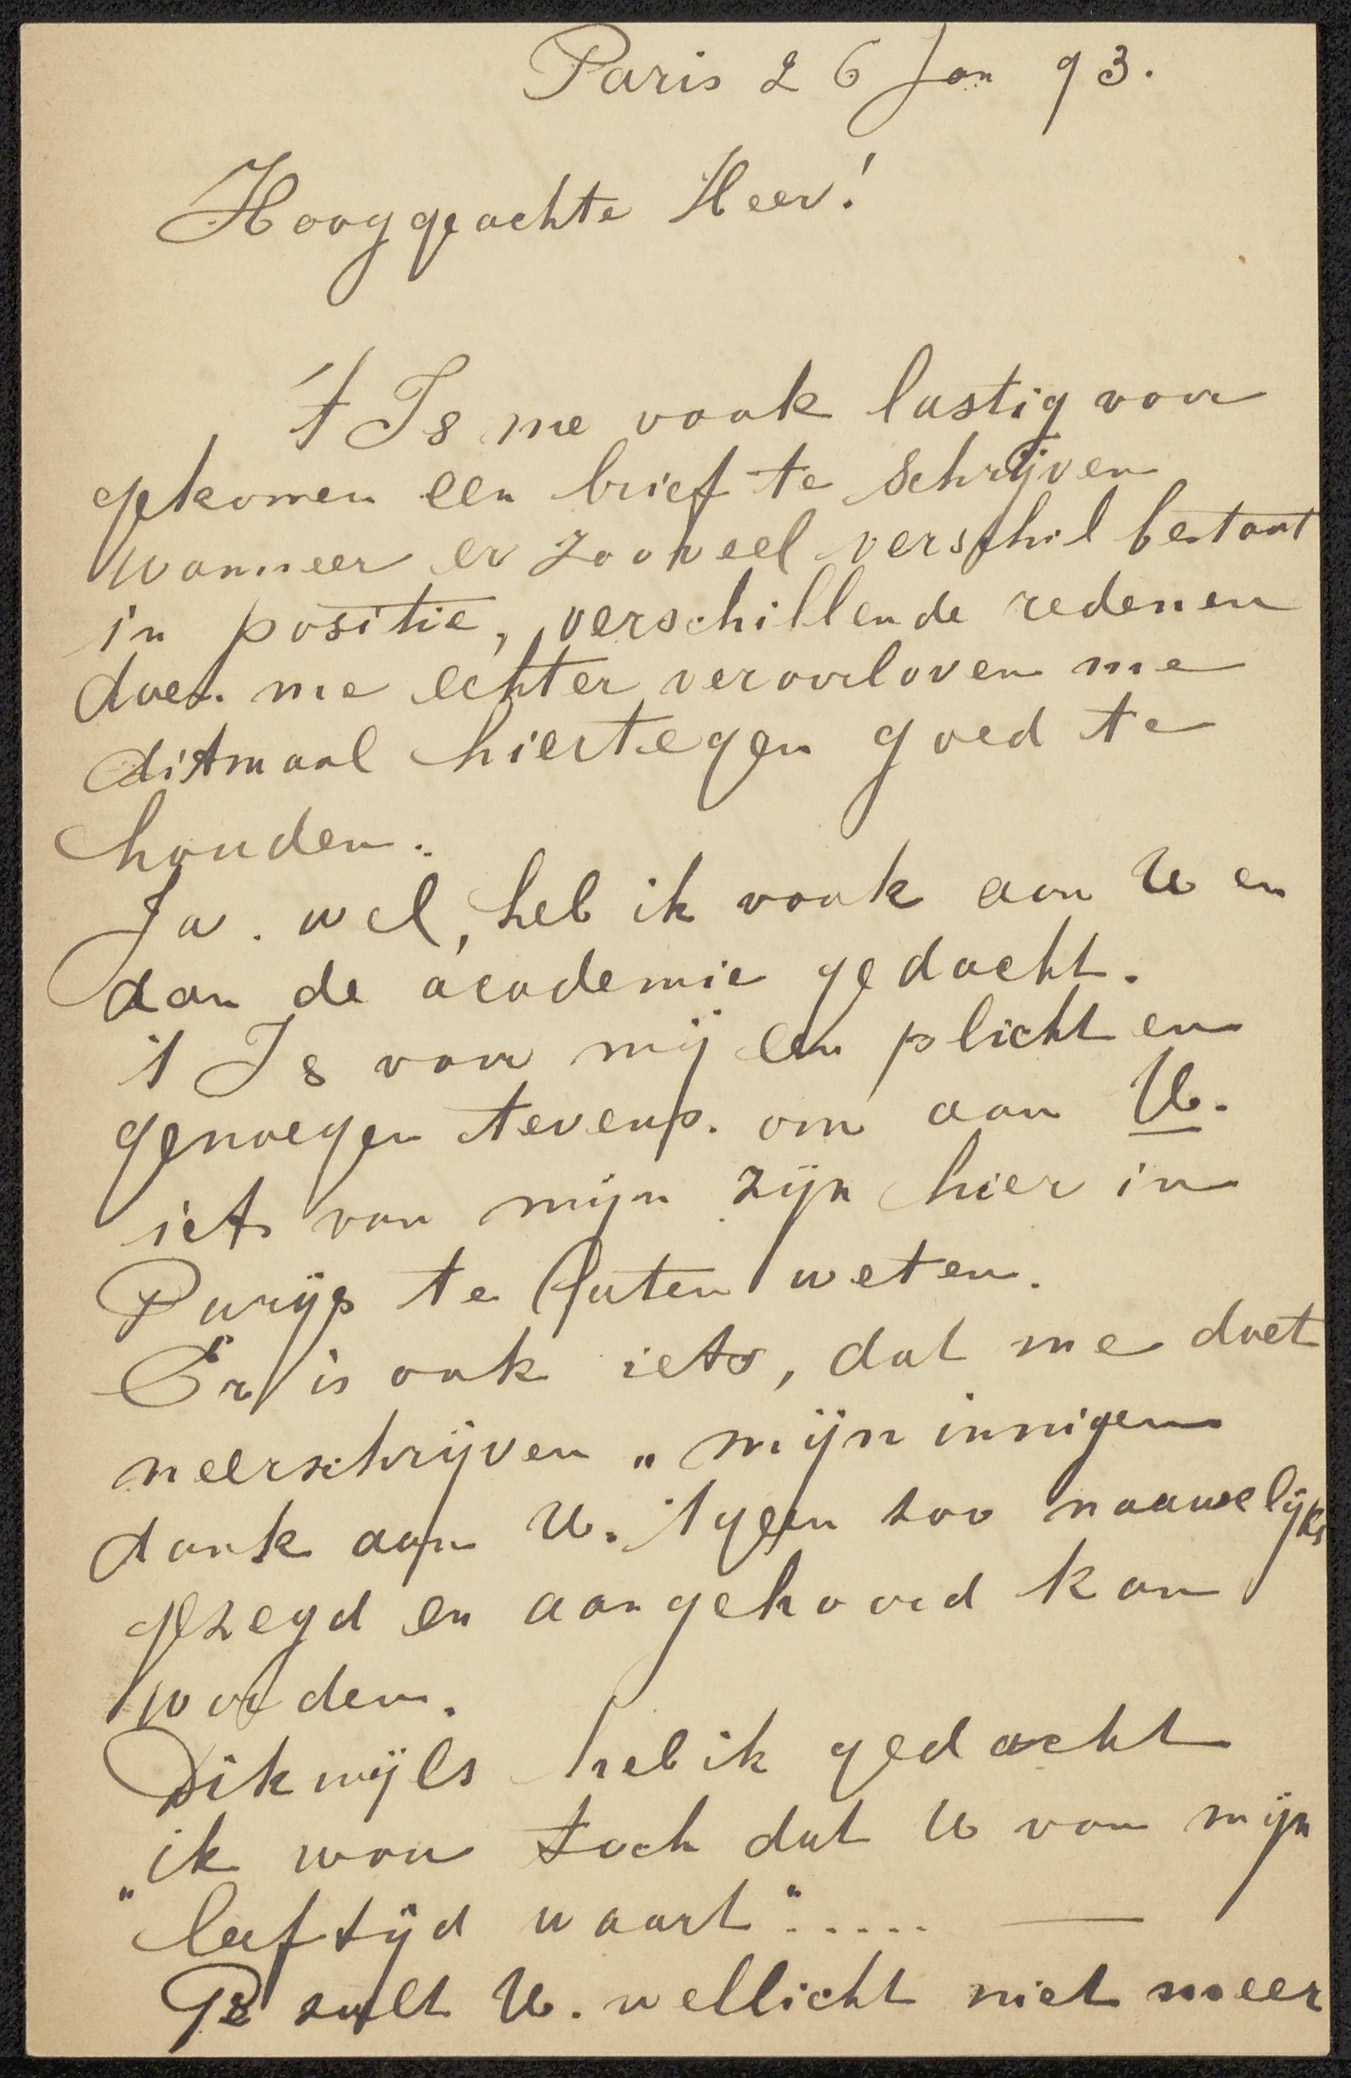 Paris 26 Jan 93.
Hooggeachte Heer!
't Is me vaak lastig voor
gekomen een brief te schrijven
wanneer er zooveel verschil bestaat
in positie, verschillende redenen
doen me echter veroorloven me
ditmaal hiertegen goed te
houden.
Ja. wel, heb ik vaak aan U en
aan de academie gedacht.
't Is voor mij een plicht en
genoegen tevens. om aan U.
iets van mijn zijn hier in
Parijs te laten weten.
Er is ook iets, dat me doet
neerschrijven „mijn innigen
dank aan U. 'tgeen zoo naauwelijks
gezegd en aangehoord kan
worden.
Dikwijls heb ik gedacht
„ik wou toch dat U van mijn
leeftijd waart".....
Ge zult U. wellicht niet meer